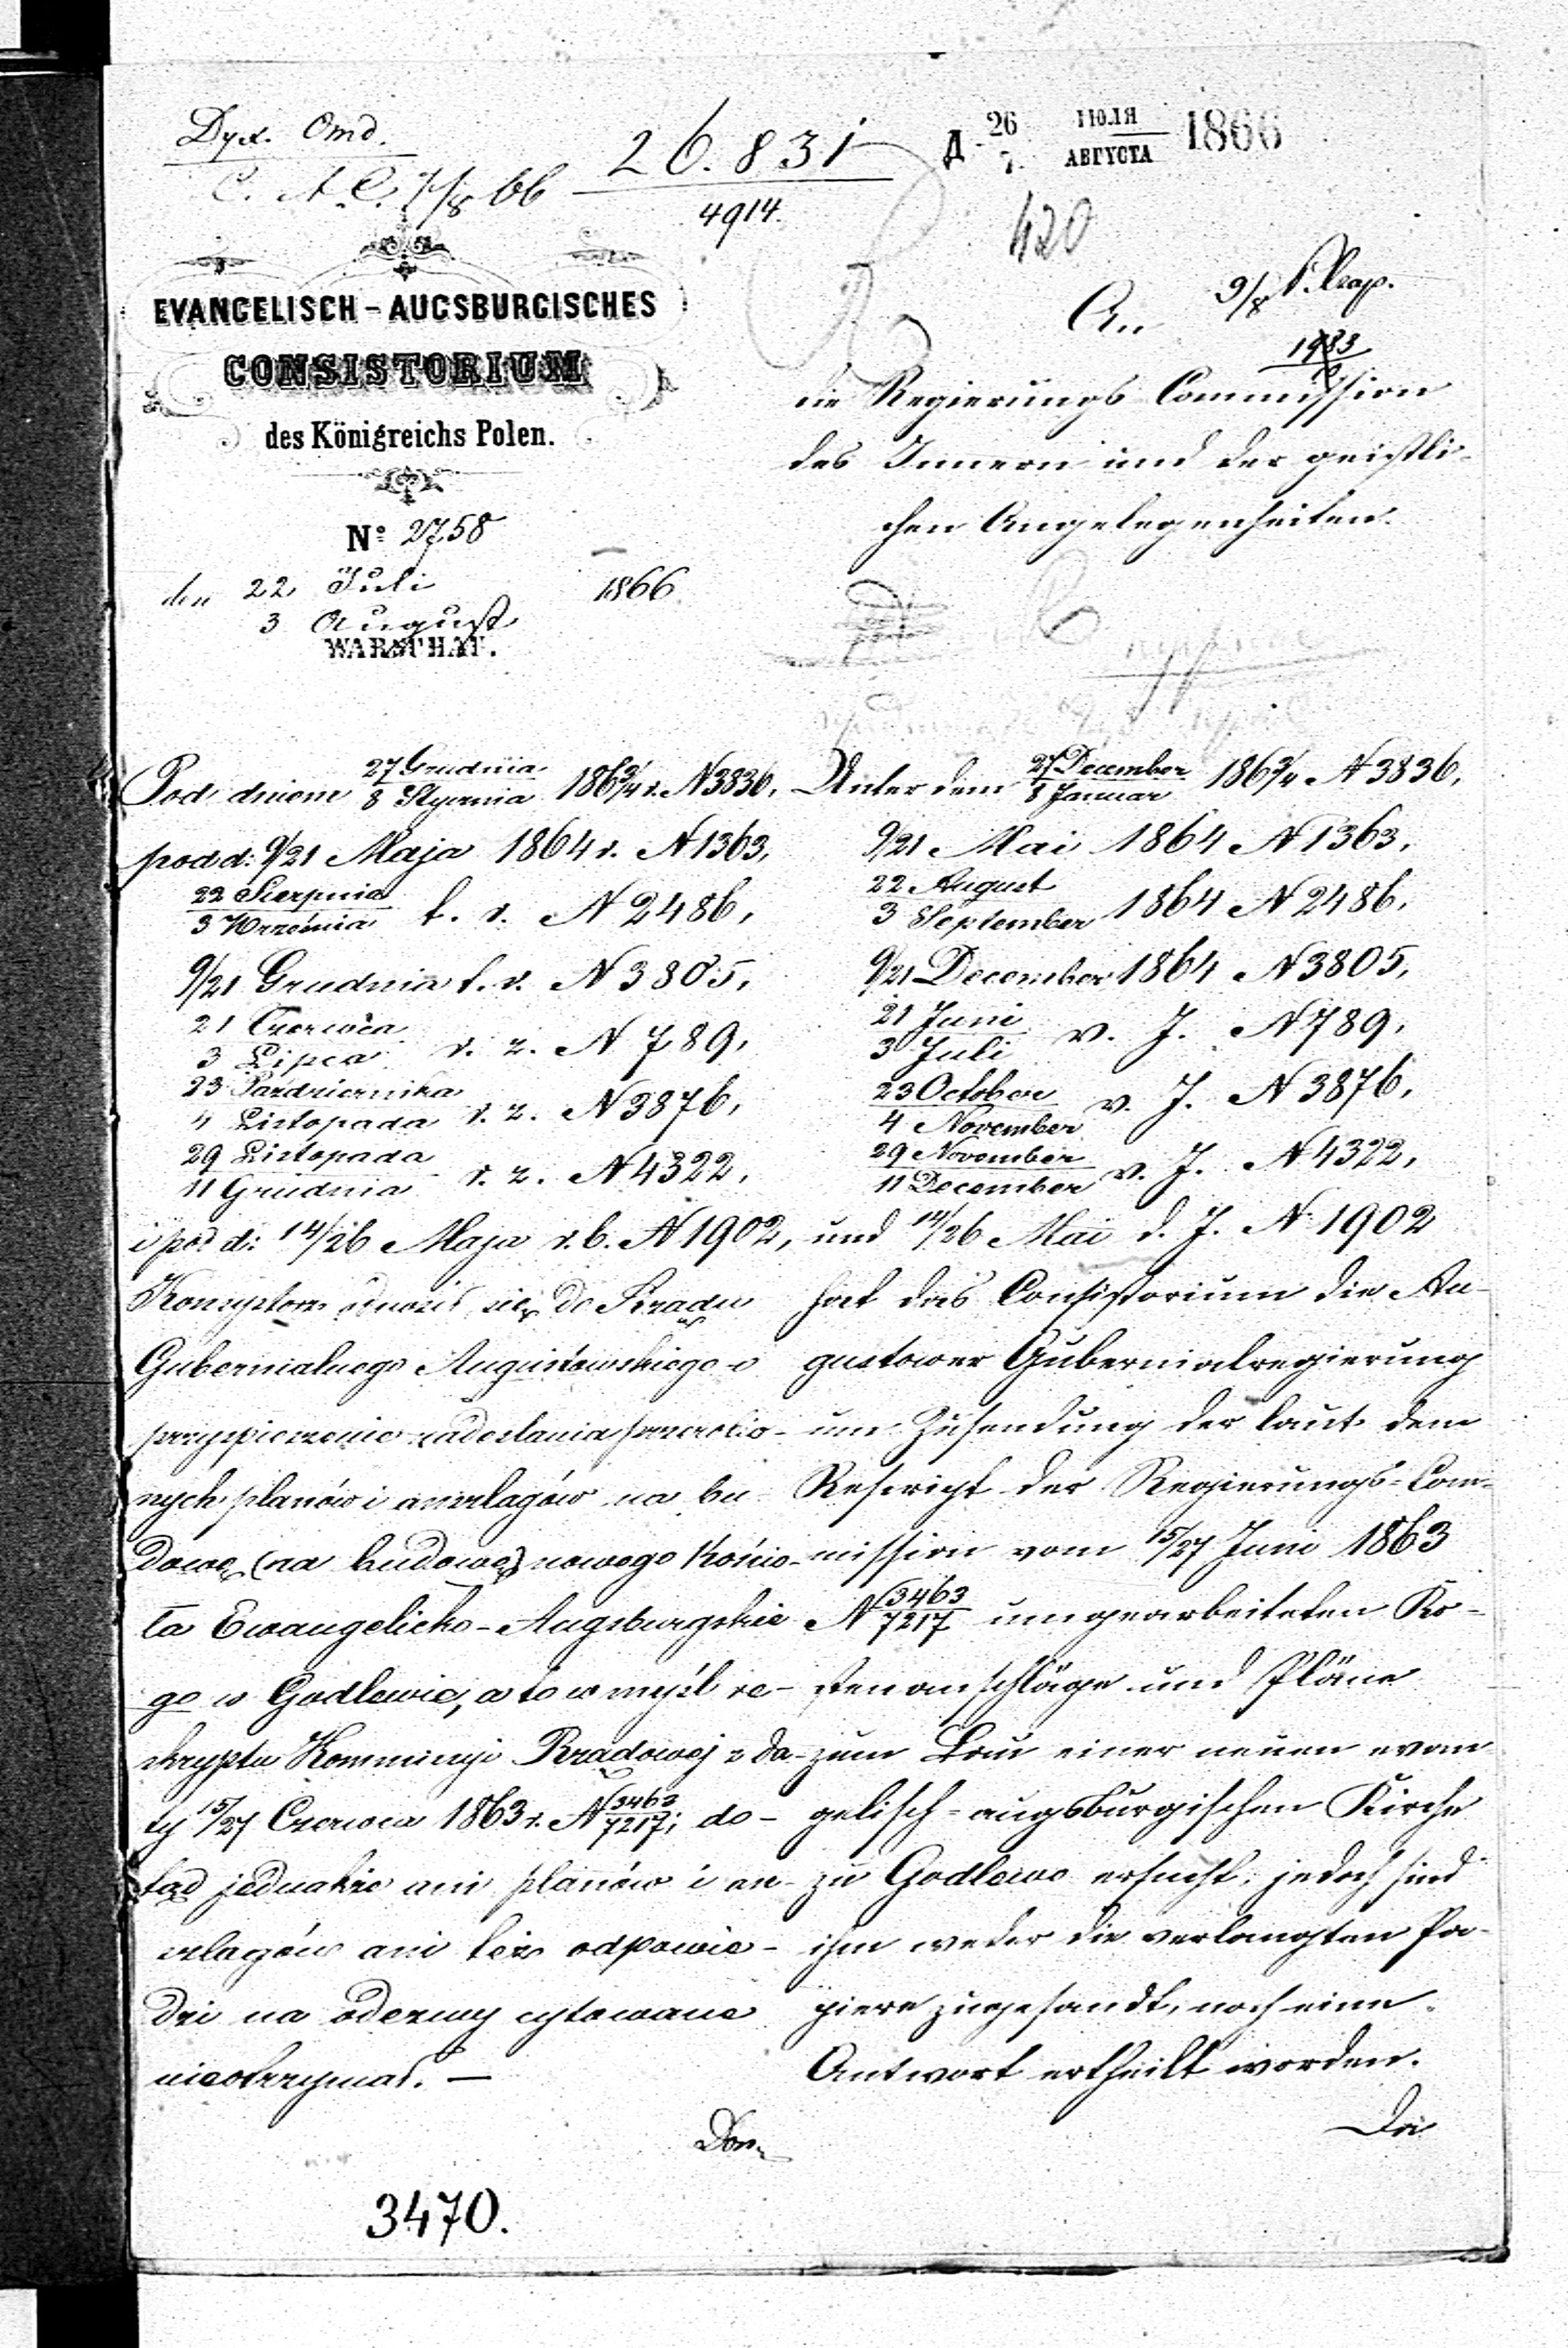 Дух. Отд.
26.831
4914.
Д 26 ІЮЛЯ 1866
7 АВГУСТА
420
EVANGELISCH-AUGSBURGISCHES
CONSISTORIUM
des Königreichs Polen.
No 2758
den 22 Juli 1866
3 August
WARSCHAU.
9/8
1933
An
die Regierungs Commission
des Innern und der geistli-
chen Angelegenheiten.
Pod dniem 27 Grudnia / 8 Stycznia 1863/4 r. N 3836,
pod d: 9/21 Maja 1864 r. N 1363,
22 Sierpnia / 3 Września t. r. N 2486,
9/21 Grudnia t. r. N 3805,
21 Czerwca / 3 Lipca r. z. N 789,
23 Października / 4 Listopada r. z. N 3876,
29 Listopada / 11 Grudnia r. z. N 4322,
i pod d: 14/26 Maja r. b. N 1902,
Konsystorz odnosił się do Rządu
Gubernialnego Augustowskiego o
przyspieszenie nadesłania przerobio-
nych planów i anszlagów na bu-
dowę (na budowę) nowego Kościo-
ła Ewangelicko-Augsburgskie
go w Godlewie, a to w myśl re-
skryptu Kommissyi Rządowej z da-
ty 15/27 Czerwca 1863 r. N 3463/7217; do-
tąd jednakże ani planów i an-
szlagów ani też odpowie-
dzi na odezwy cytowane
nieotrzymał. —
Unter dem 27 December / 8 Januar 1863/4 N 3836,
9/21 Mai 1864 N 1363,
22 August / 3 September 1864 N 2486,
9/21 December 1864 N 3805,
21 Juni / 3 Juli v. J. N 789,
23 October / 4 November v. J. N 3876,
29 November / 11 December v. J. N 4322,
und 14/26 Mai d. J. N 1902
hat das Consistorium die Au-
gustower Gubernialregierung
um Zusendung der laut dem
Rescript der Regierungs-Com-
mission vom 15/27 Juni 1863
N 3463/7217 umgearbeiteten Ko-
stenanschläge und Pläne
zum Bau einer neuen evan
gelisch-augsburgischen Kirche
zu Godlewo ersucht; jedoch sind
ihm weder die verlangten Pa-
piere zugesandt, noch eine
Antwort ertheilt worden.
Da
3470.